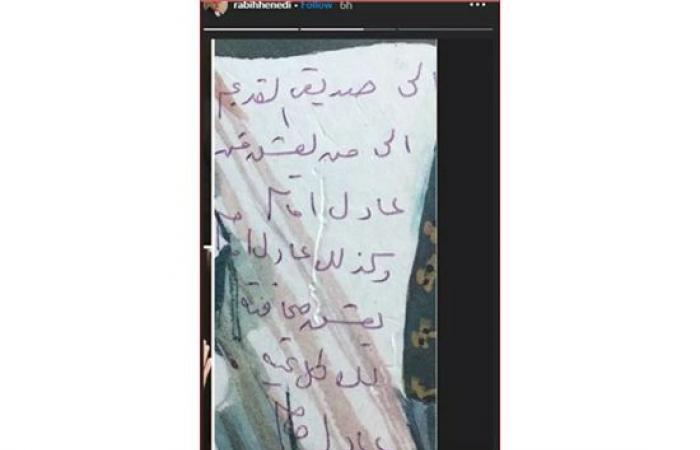 rabihhenedi · Follow 6h
الى صديقى القديم
الى من يعشق فن
عادل امام
وكذلك عادل امام
يعشق صحافته
لك كل تحية
عادل امام